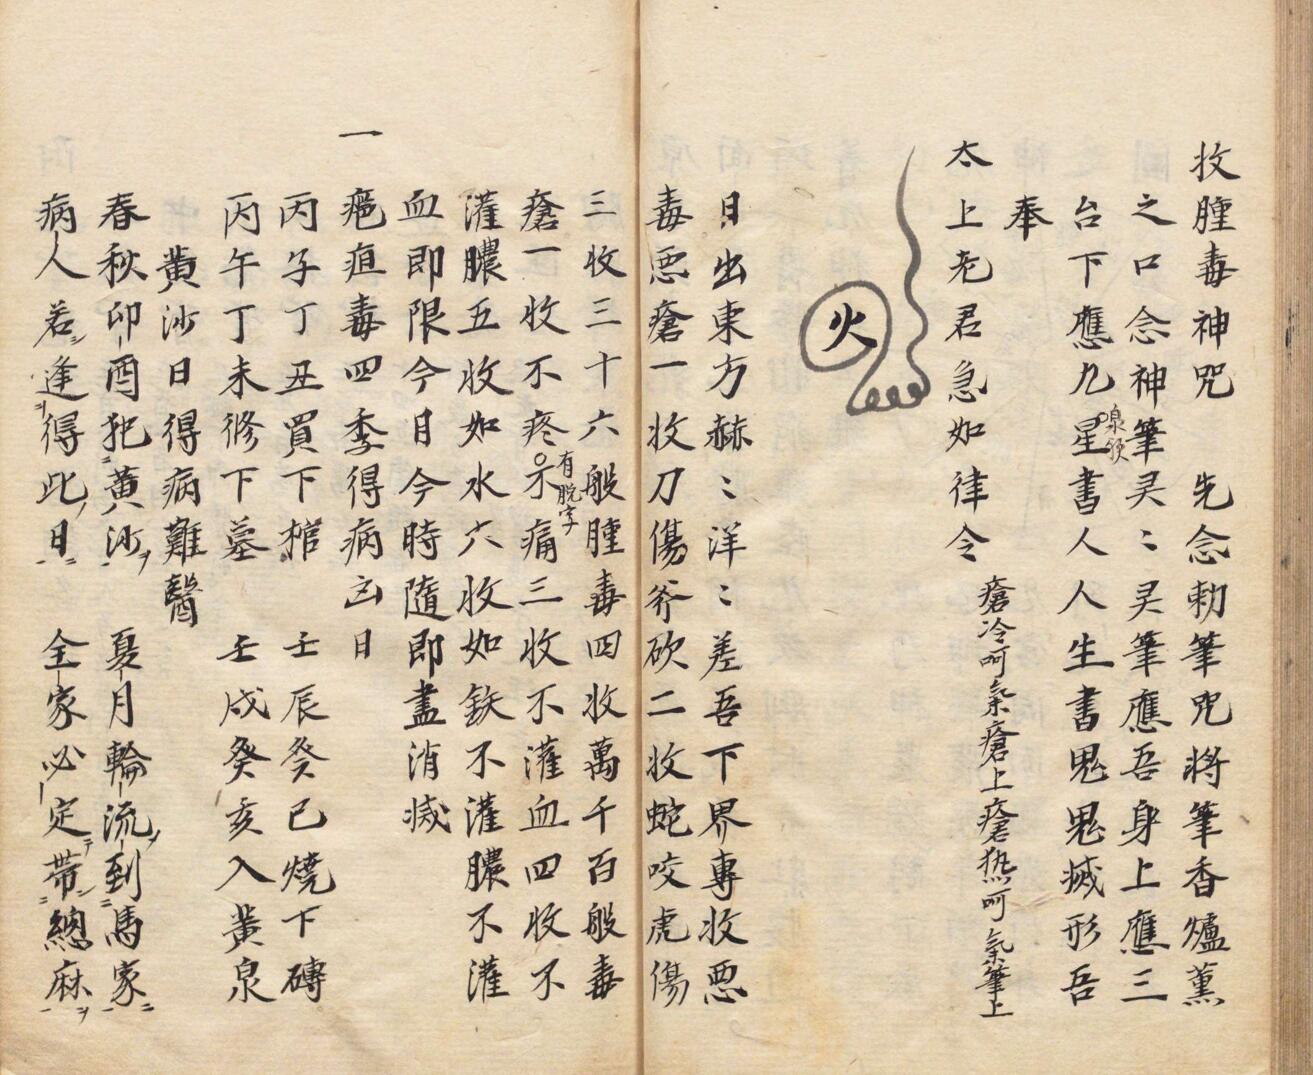 收腫毒神咒　先念勅筆咒將筆香爐薰
之口念神筆灵〻灵筆應吾身上應三
台下應九星書人人生書鬼鬼滅形吾
奉
太上老君急如律令
瘡冷呵氣瘡上瘡热呵氣筆上
火
日出東方赫〻洋〻差吾下界專收悪
毒悪瘡一收刀傷斧砍二收蛇咬虎傷
三收三十六般腫毒四收萬千百般毒
瘡一收不疼示痛三收不灌血四收不
有脱字
灌膿五收如水六收如鉄不灌膿不灌
血即限今日今時隨即盡消减
一
疤疽毒四季得病凶日
丙子丁丑買下棺　壬辰癸已燒下磚
丙午丁未修下墓　壬戌癸亥入黃泉
黄沙日得病難醫
春秋卯酉犯黄沙　夏月輪流到馬家
病人若逢得此日　全家必定帶總麻